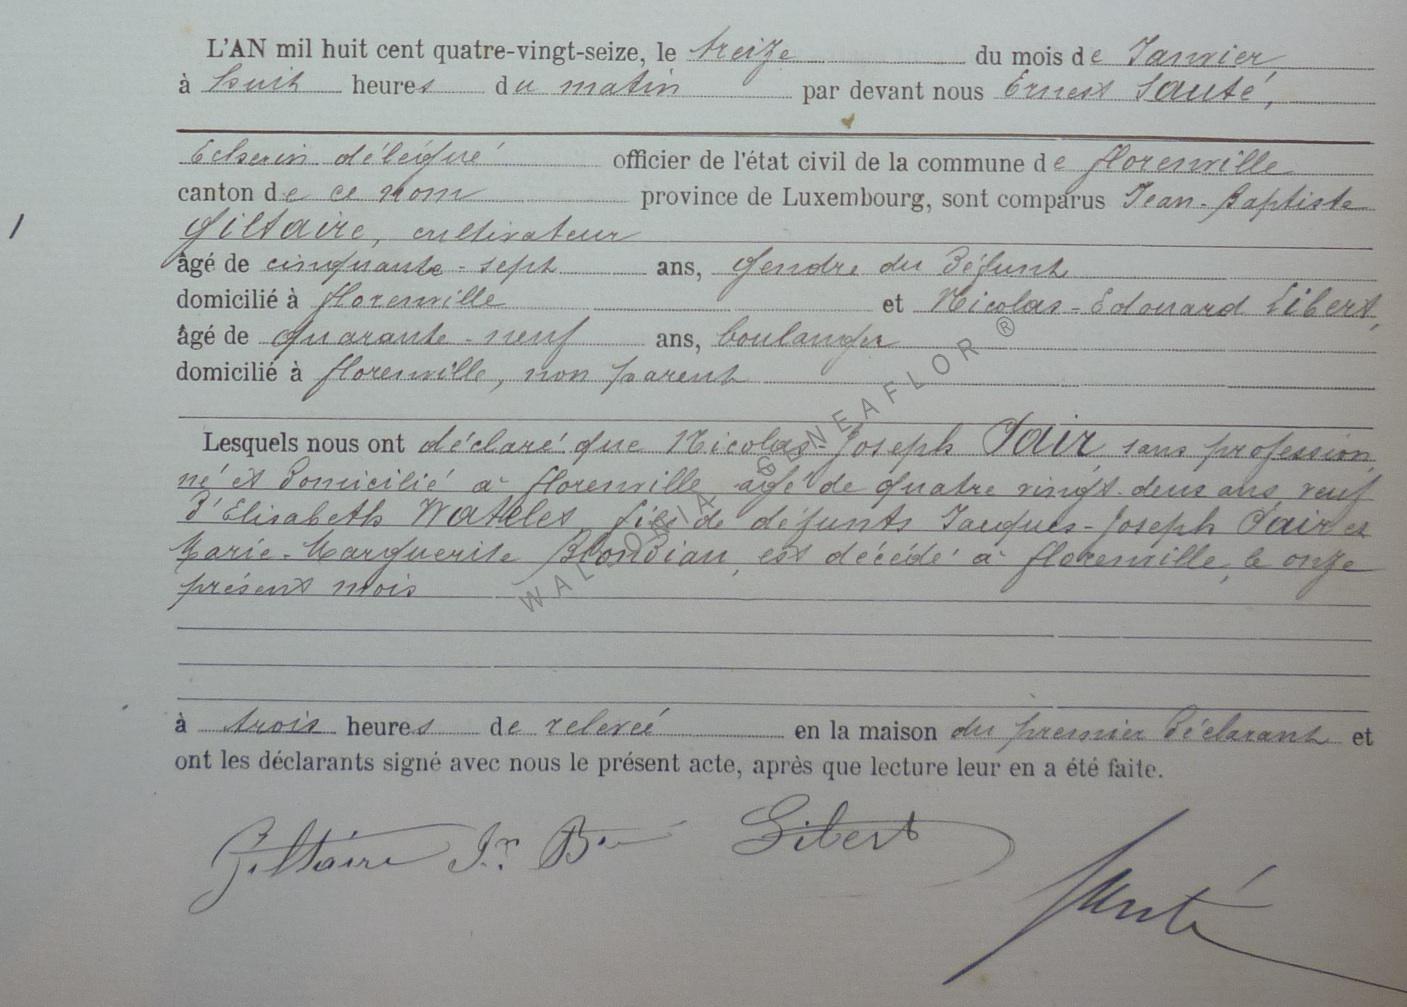 L'AN mil huit cent quatre-vingt-seize, le treize du mois de Janvier,
à huit heures du matin par devant nous Ernest Sauté,
Echevin délégué officier de l'état civil de la commune de florenville
canton de ce nom province de Luxembourg, sont comparus Jean-Baptiste
Giltaire, cultivateur
âgé de cinquante-sept ans, Gendre du Défunt
domicilié à florenville et Nicolas-Edouard Libert,
âgé de quarante-neuf ans, boulanger
domicilié à florenville, non parent
Lesquels nous ont déclaré que Nicolas-Joseph sans profession,
né et domicilié à florenville âgé de quatre vingt-deux ans, veuf
D'Elisabeth Watelet, fils de défunts Jacques-Joseph et
Marie-Marguerite Blondian, est décédé à florenville, le onze
présent mois
à trois heures de relevée en la maison du premier Déclarant et
ont les déclarants signé avec nous le présent acte, après que lecture leur en a été faite.
Giltaire Jn Bte Libert
Sauté
WALLONIA GENEAFLOR ®